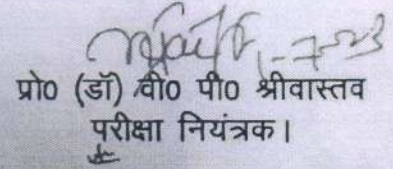 प्रो0 (डॉ) वी0 पी0 श्रीवास्तव
परीक्षा नियंत्रक।